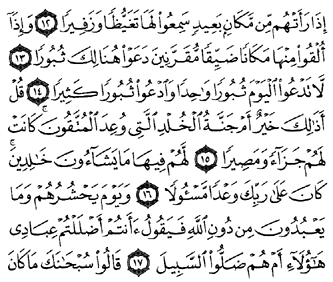 إِذَا رَأَتْهُم مِّن مَّكَانٍ بَعِيدٍ سَمِعُوا۟ لَهَا تَغَيُّظًا وَزَفِيرًا ١٢ وَإِذَآ
أُلْقُوا۟ مِنْهَا مَكَانًا ضَيِّقًا مُّقَرَّنِينَ دَعَوْا۟ هُنَالِكَ ثُبُورًا ١٣
لَّا تَدْعُوا۟ ٱلْيَوْمَ ثُبُورًا وَٰحِدًا وَٱدْعُوا۟ ثُبُورًا كَثِيرًا ١٤ قُلْ
أَذَٰلِكَ خَيْرٌ أَمْ جَنَّةُ ٱلْخُلْدِ ٱلَّتِى وُعِدَ ٱلْمُتَّقُونَ ۚ كَانَتْ
لَهُمْ جَزَآءً وَمَصِيرًا ١٥ لَّهُمْ فِيهَا مَا يَشَآءُونَ خَٰلِدِينَ ۚ
كَانَ عَلَىٰ رَبِّكَ وَعْدًا مَّسْـُٔولًا ١٦ وَيَوْمَ يَحْشُرُهُمْ وَمَا
يَعْبُدُونَ مِن دُونِ ٱللَّهِ فَيَقُولُ ءَأَنتُمْ أَضْلَلْتُمْ عِبَادِى
هَٰٓؤُلَآءِ أَمْ هُمْ ضَلُّوا۟ ٱلسَّبِيلَ ١٧ قَالُوا۟ سُبْحَٰنَكَ مَا كَانَ